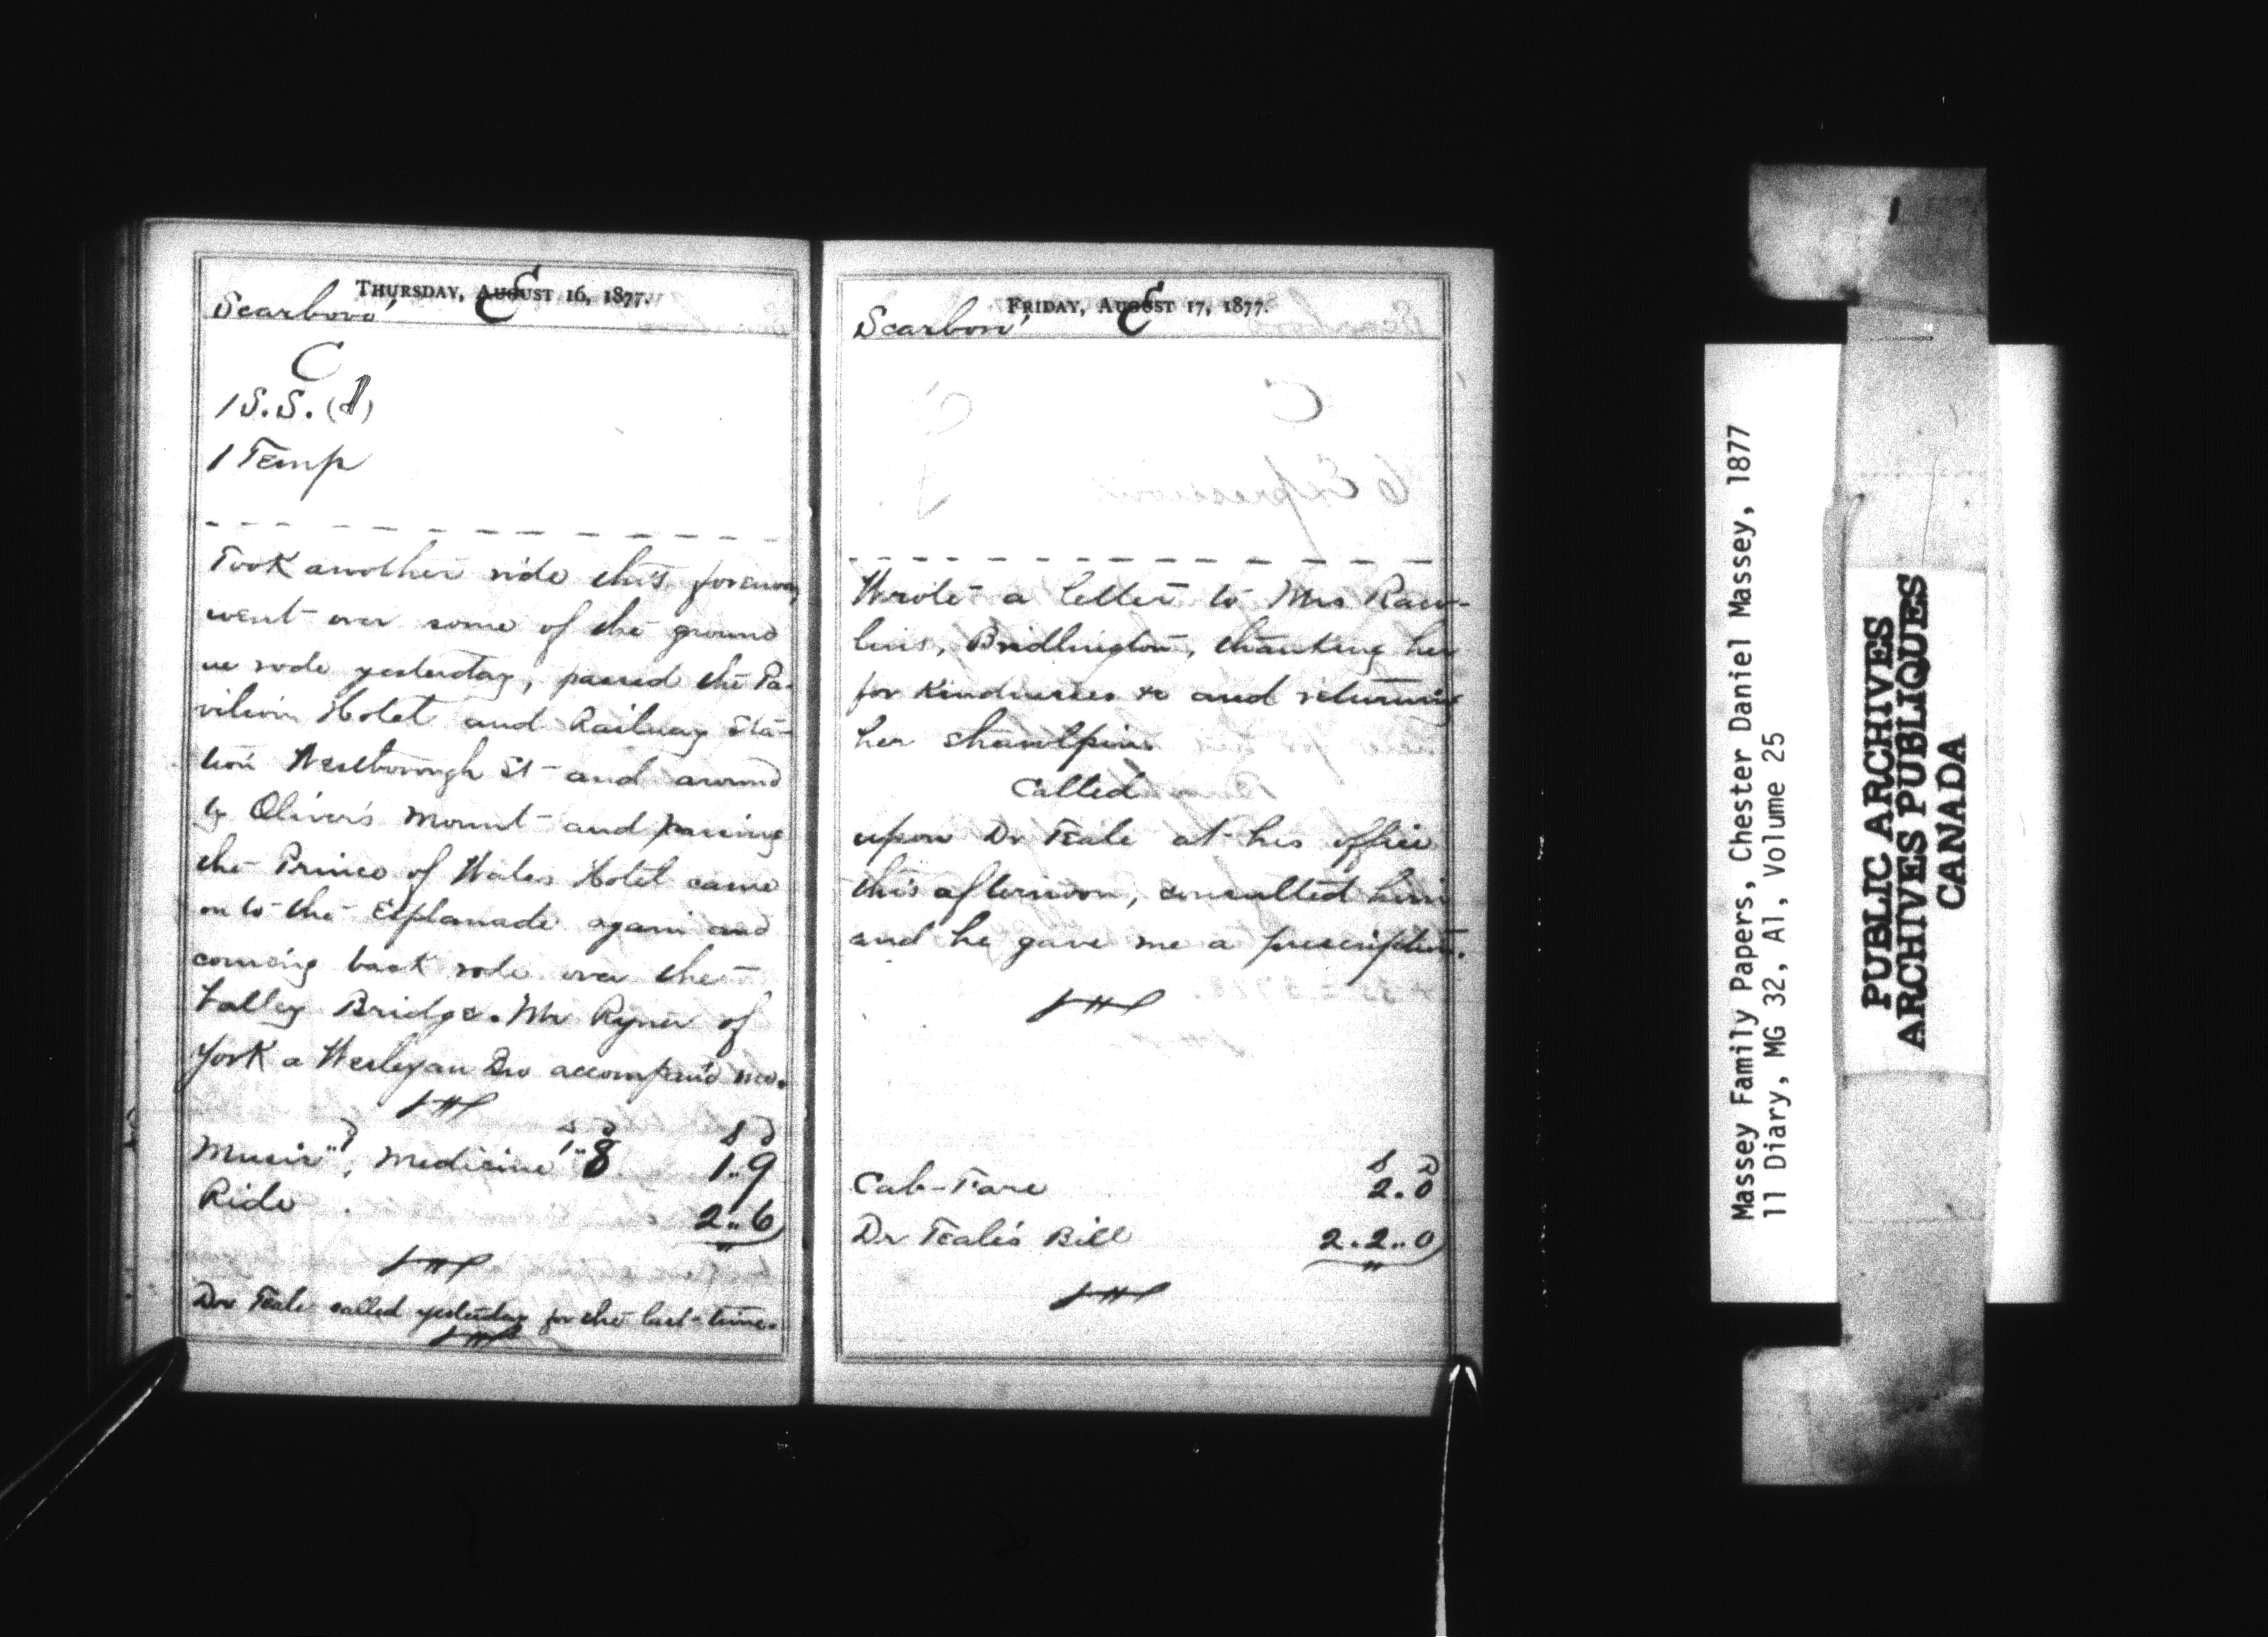 THURSDAY, AUGUST 16, 1877.
Scarboro'
C
C
1 S.S. (1)
1 Temp
Took another ride this forenoon,
went over some of the ground
we rode yesterday, passed the Pa-
vilion Hotel and Railway Sta-
tion Westborough St and around
by Oliver's Mount and passing
the Prince of Wales Hotel came
on to the Esplanade again and
coming back rode over the
Valley Bridge. Mr Ryner of
York a Wesleyan Bro accompan'd me.
s d s d
Music "1, Medicine 1..8 1..9
Ride 2..6
Dr Teale called yesterday for the last time.
FRIDAY, AUGUST 17, 1877.
C
Scarboro'
Wrote a letter to Mrs Raw-
lins, Bridlington, thanking her
for kindnesses &c and returning
her shawlpin.
Called
upon Dr Teale at his office
this afternoon, consulted him
and he gave me a prescription.
s d
Cab-Fare 2.0
Dr Teale's Bill 2.2..0
Massey Family Papers, Chester Daniel Massey, 1877
11 Diary, MG 32, A1, Volume 25
PUBLIC ARCHIVES
ARCHIVES PUBLIQUES
CANADA